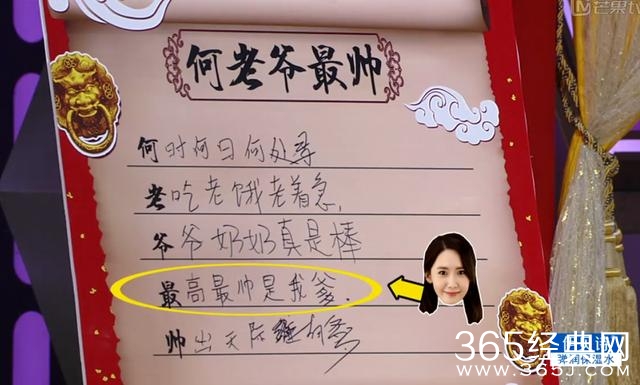 芒果tv
何老爷最帅
何时何日何处寻
老吃老饿老着急,
爷爷奶奶真是棒
最高最帅是我爹.
帅出天际
弹润保湿水
365经典网
www.365J.com